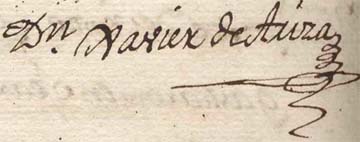 Dn. Xavier de Auza